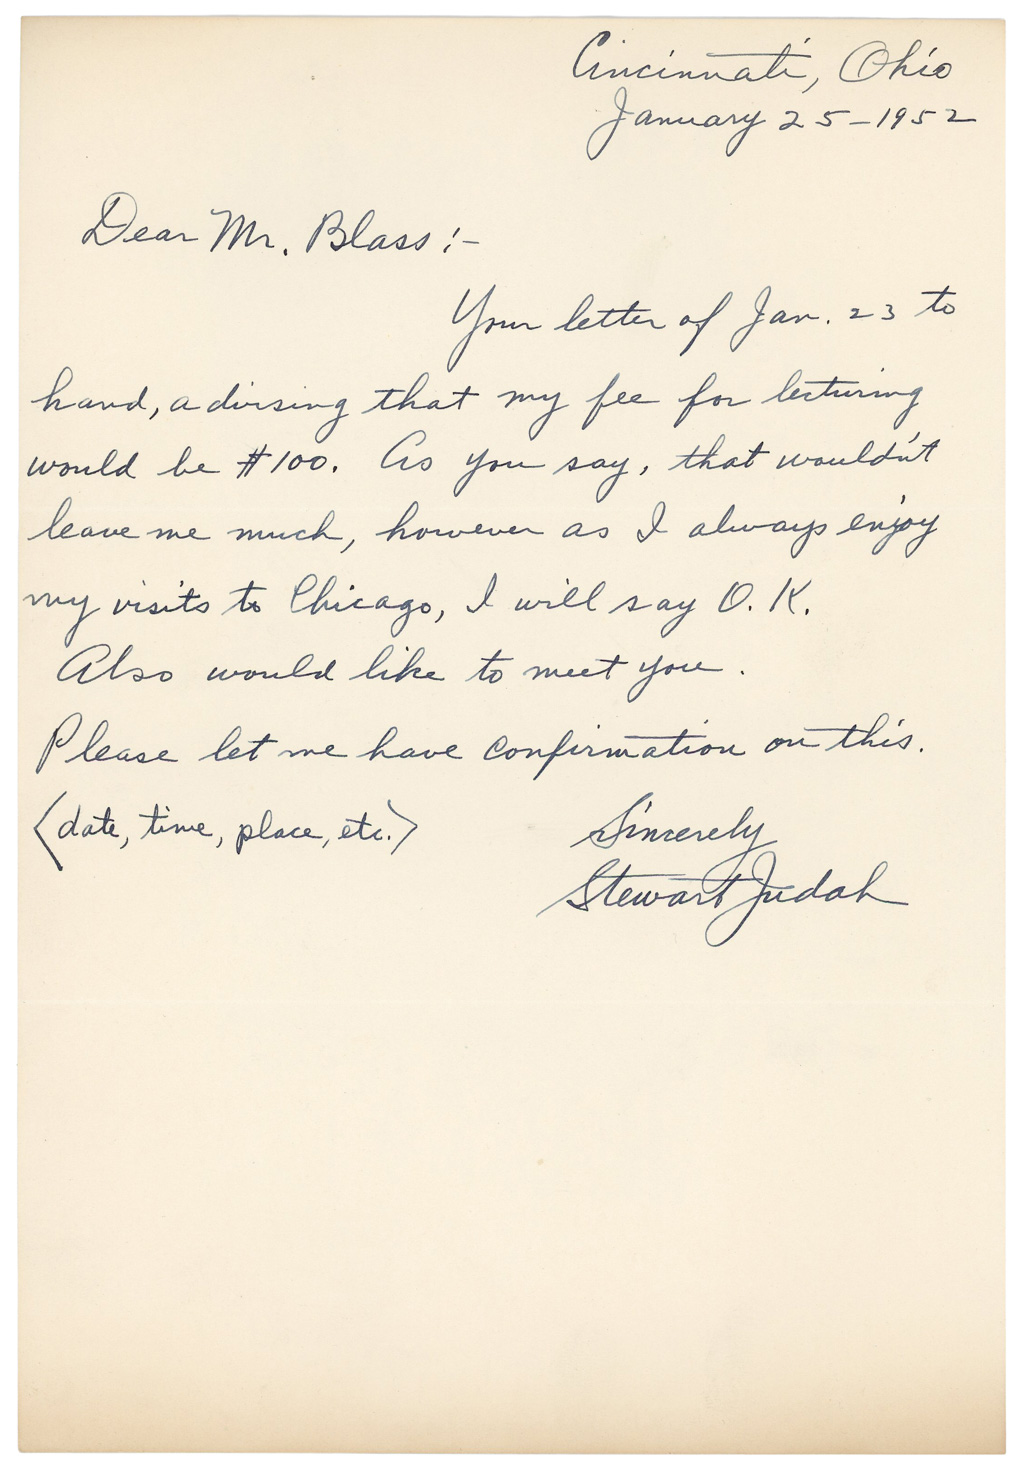 Cincinnati, Ohio
January 25-1952
Dear Mr. Blass:-
Your letter of Jan. 23 to
hand, advising that my fee for lecturing
would be $100. As you say, that wouldn't
leave me much, however as I always enjoy
my visits to Chicago, I will say O.K.
Also would like to meet you.
Please let me have confirmation on this.
(date, time, place, etc.)
Sincerely
Stewart Judah